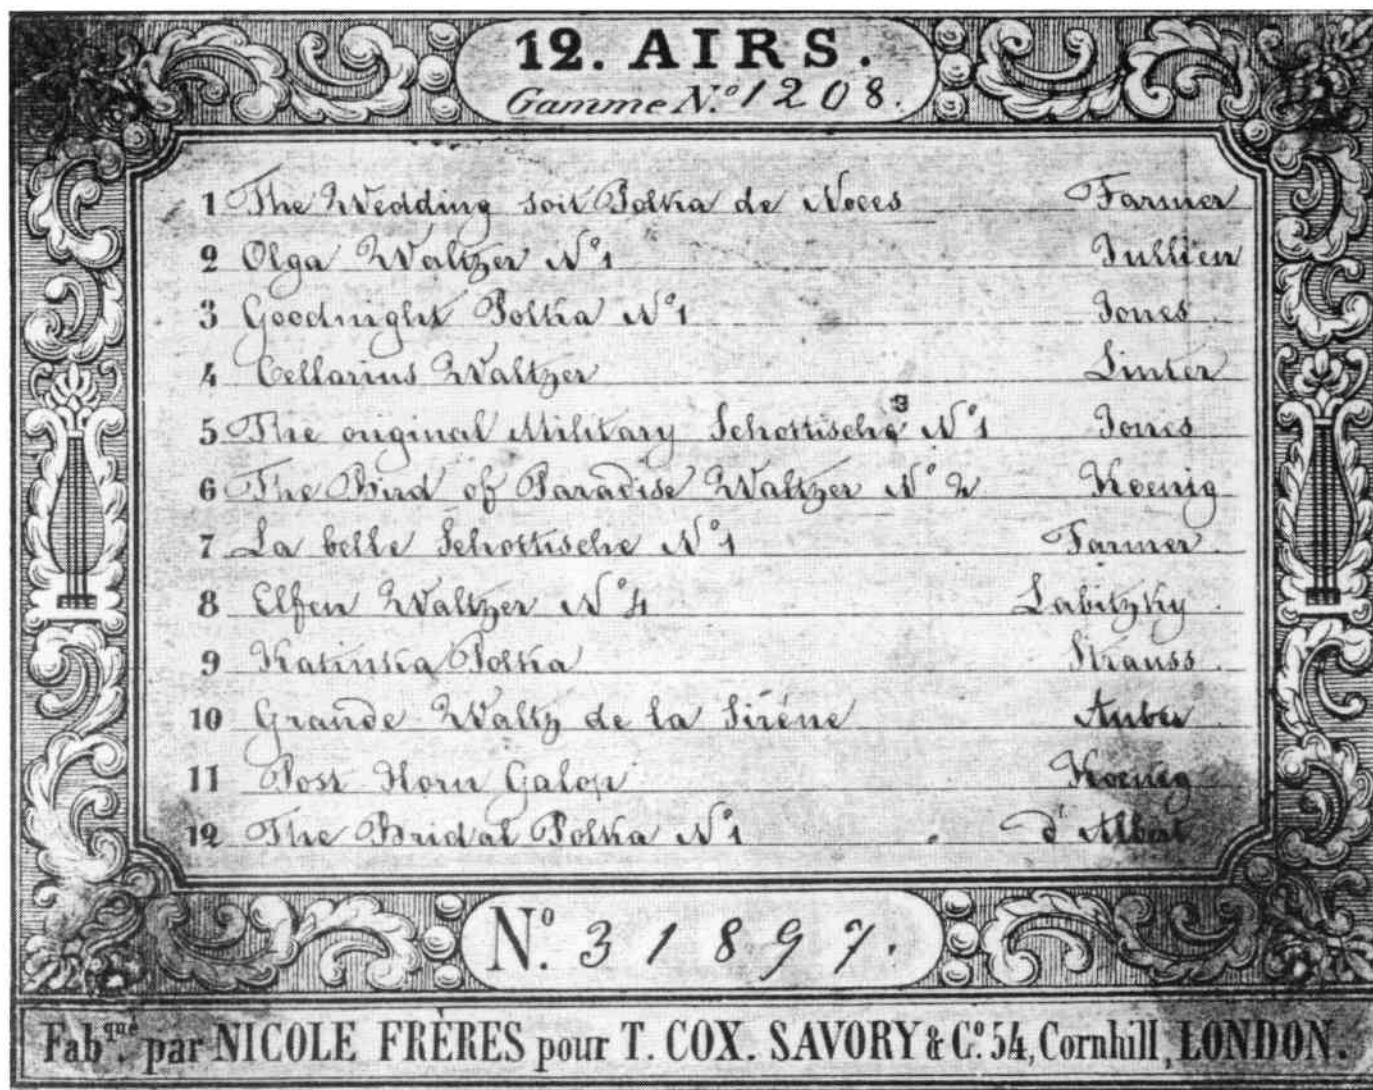 12. AIRS.
Gamme N.º 1208.
1 The Wedding soit Polka de Noces Farmer
2 Olga Waltzer Nº 1 Jullien
3 Goodnight Polka Nº 1 Jones
4 Cellarius Waltzer Linter
5 The original Military Schottische Nº 1 Jones
6 The Bird of Paradise Waltzer Nº 2 Koenig
7 La belle Schottische Nº 1 Farmer
8 Elfen Waltzer Nº 4 Labitzky
9 Katinka Polka Strauss
10 Grande Waltz de la Siréne Auber
11 Post Horn Galop Koenig
12 The Bridal Polka Nº 1 d'Albert
Nº. 31897.
Fab.qué par NICOLE FRÈRES pour T. COX. SAVORY & Cº. 54, Cornhill, LONDON.